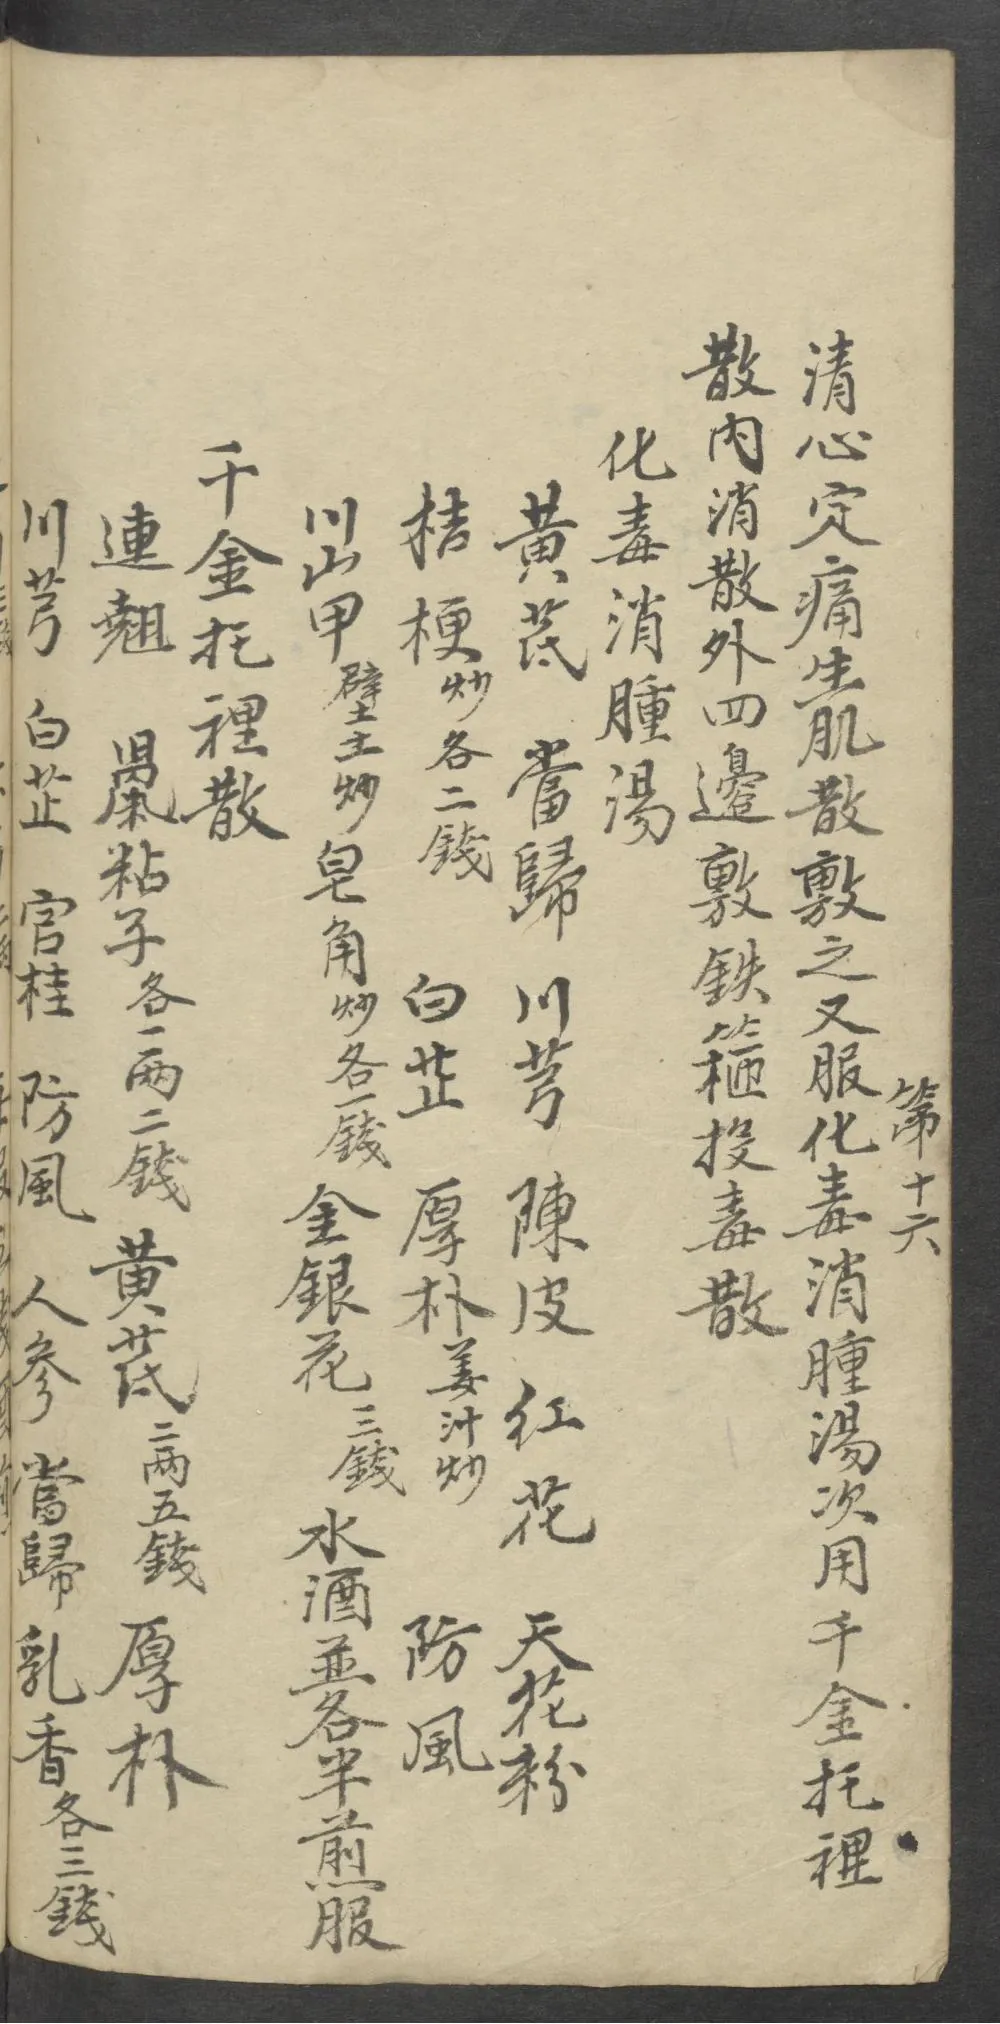 第十六
清心定痛生肌散敷之又服化毒消腫湯次用千金托裡
散内消散外四邊敷鉄箍投毒散
化毒消腫湯
黄茋 當歸 川芎 陳皮 红花 天花粉
桔梗炒各二錢 白芷 厚朴姜汁炒 防風
川山甲壁土炒 皂角炒各一錢 金銀花三錢 水酒並各半煎服
千金托裡散
連翹 粘子各一两二錢 黄茋二两五錢 厚朴
川芎 白芷 官桂 防風 人參 當歸 乳香各三錢